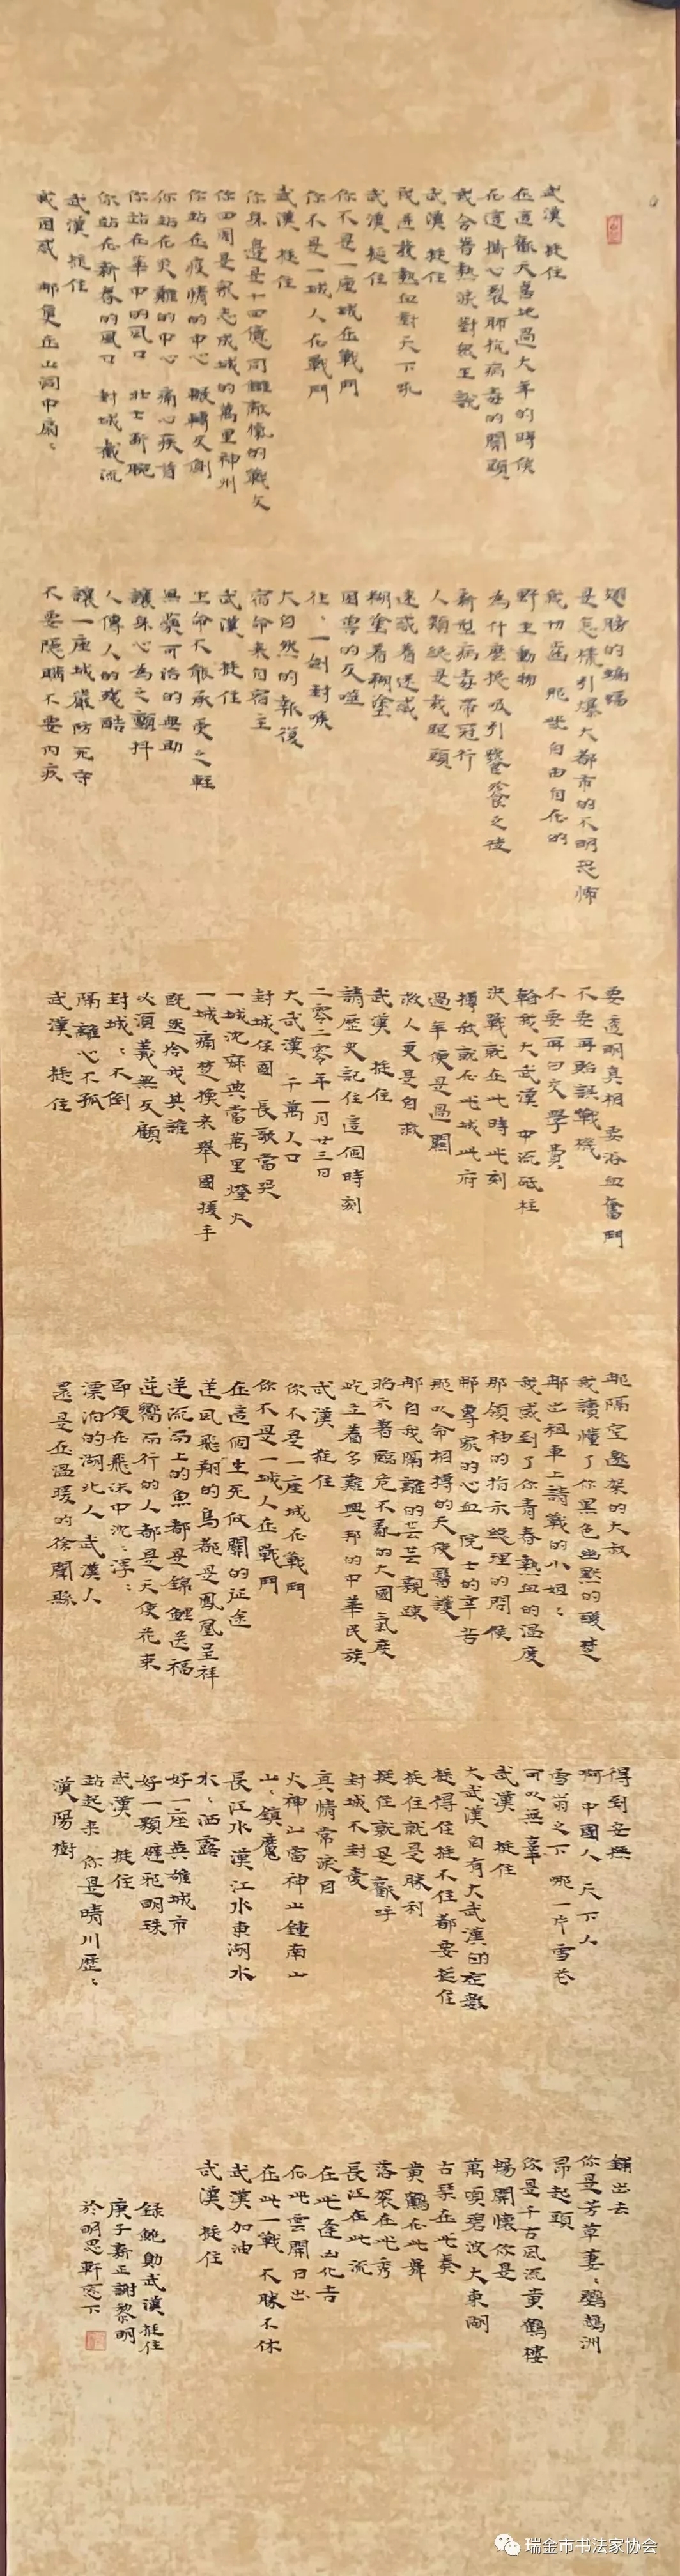 武漢 挺住
在這歡天喜地過大年的時候
在這撕心裂肺抗病毒的關頭
我含着熱淚對蒼生說
武漢 挺住
我迸發熱血對天下吼
武漢 挺住
你不是一座城在戰鬥
你不是一城人在戰鬥
武漢 挺住
你身邊是十四億同仇敵愾的戰友
你四周是眾志成城的萬里神州
你站在疫情的中心 輾轉反側
你站在災難的中心 痛心疾首
你站在華中的風口 壯士斷腕
你站在新春的風口 封城截流
武漢 挺住
我困惑 那隻在山洞中扇々
翅膀的蝙蝠
是怎樣引爆大都市的不明恐怖
我切齒 那些自由自在的
野生動物
為什麼總吸引饕餮之徒
新型病毒帶冠行
人類總是栽跟頭
迷惑着迷惑
糊塗着糊塗
因果的反噬
往々一劍封喉
大自然的報復
宿命來自宿主
武漢 挺住
生命不能承受之輕
無藥可治的無助
讓身心為之顫抖
人傳人的殘酷
讓一座城嚴防死守
不要隱瞞不要內疚
要透明真相 要浴血奮鬥
不要再貽誤戰機
不要再曰交學費
翰我大武漢 中流砥柱
決戰就在此時此刻
搏殺就在此城此府
過年便是過關
救人更是自救
武漢 挺住
請歷史記住這個時刻
二零二零年一月廿三日
大武漢 千萬人口
封城保國 長歌當哭
一城沈寂典當萬里燈火
一城痛楚換來舉國援手
既然捨我其誰
必須義無反顧
封城々不倒
隔離心不孤
武漢 挺住
那隔空邀架的大叔
我讀懂了你黑色幽默的酸楚
那出租車上請戰的小姐々
我感到了你青春熱血的溫度
那領袖的指示總理的問候
那專家的心血 院士的辛苦
那以命相搏的天使醫護
那自我隔離的芸芸親疎
昭示着臨危不亂的大國氣度
屹立着多難興邦的中華民族
武漢 挺住
你不是一座城在戰鬥
你不是一城人在戰鬥
在這個生死攸關的征途
逆風飛翔的鳥都是鳳凰呈祥
逆流而上的魚都是錦鯉送福
逆嚮而行的人都是天使花束
即便在飛沫中沈々浮々
漂泊的湖北人武漢人
還是在溫暖的徐聞縣
得到安撫
啊 中國人 天下人
雪崩之下 哪一片雪花
可以無辜
武漢 挺住
大武漢自有大武漢的定數
挺得住挺不住都要挺住
挺住就是勝利
挺住就是歡呼
封城不封愛
真情常淚目
火神山雷神山鍾南山
山々鎮魔
長江水漢江水東湖水
水々洒露
好一座英雄城市
好一顆辟邪明珠
武漢 挺住
站起來 你是晴川歷々
漢陽樹
鋪出去
你是芳草萋々鸚鵡洲
昂起頭
你是千古風流黃鶴樓
暢開懷你是
萬頃碧波大東湖
古琴在此奏
黃鶴在此舞
落霞在此秀
長江在此流
在此逢凶化吉
在此雲開日出
在此一戰 不勝不休
武漢加油
武漢 挺住
錄鮑勳武漢挺住
庚子新正謝黎明
於明思軒窓下
瑞金市书法家协会